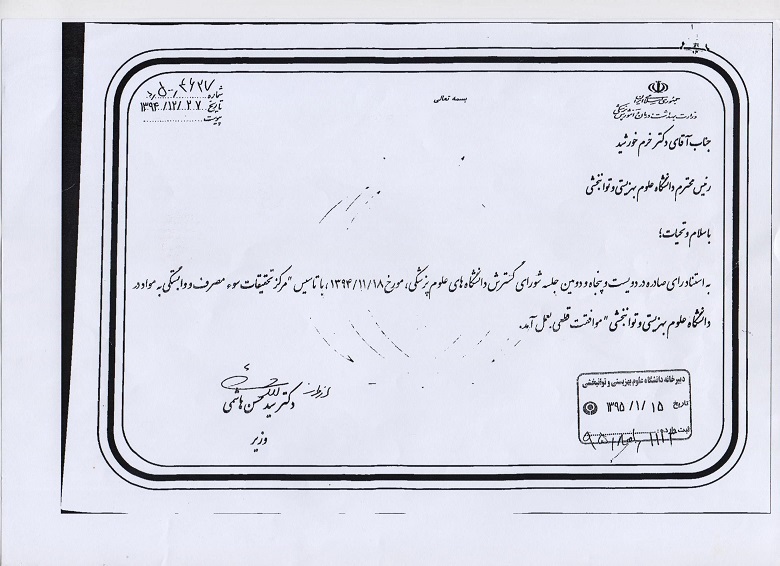 بسمه تعالی
جمهوری اسلامی ایران
وزارت بهداشت، درمان و آموزش پزشکی
شماره
تاریخ ۱۳۹۴/۱۲/۲۷
پیوست
جناب آقای دکتر خرم خورشید
رئیس محترم دانشگاه علوم بهزیستی و توانبخشی
با سلام و تحیات؛
به استناد رای صادره در دویست و پنجاه و دومین جلسه شورای گسترش دانشگاه های علوم پزشکی، مورخ ۱۳۹۴/۱۱/۱۸، با تاسیس "مرکز تحقیقات سوء مصرف و وابستگی به مواد در
دانشگاه علوم بهزیستی و توانبخشی" موافقت قطعی بعمل آمد.
دکتر سید حسن هاشمی
وزیر
دبیرخانه دانشگاه علوم بهزیستی و توانبخشی
تاریخ ۱۳۹۵/۱/۱۵
ثبت وارده